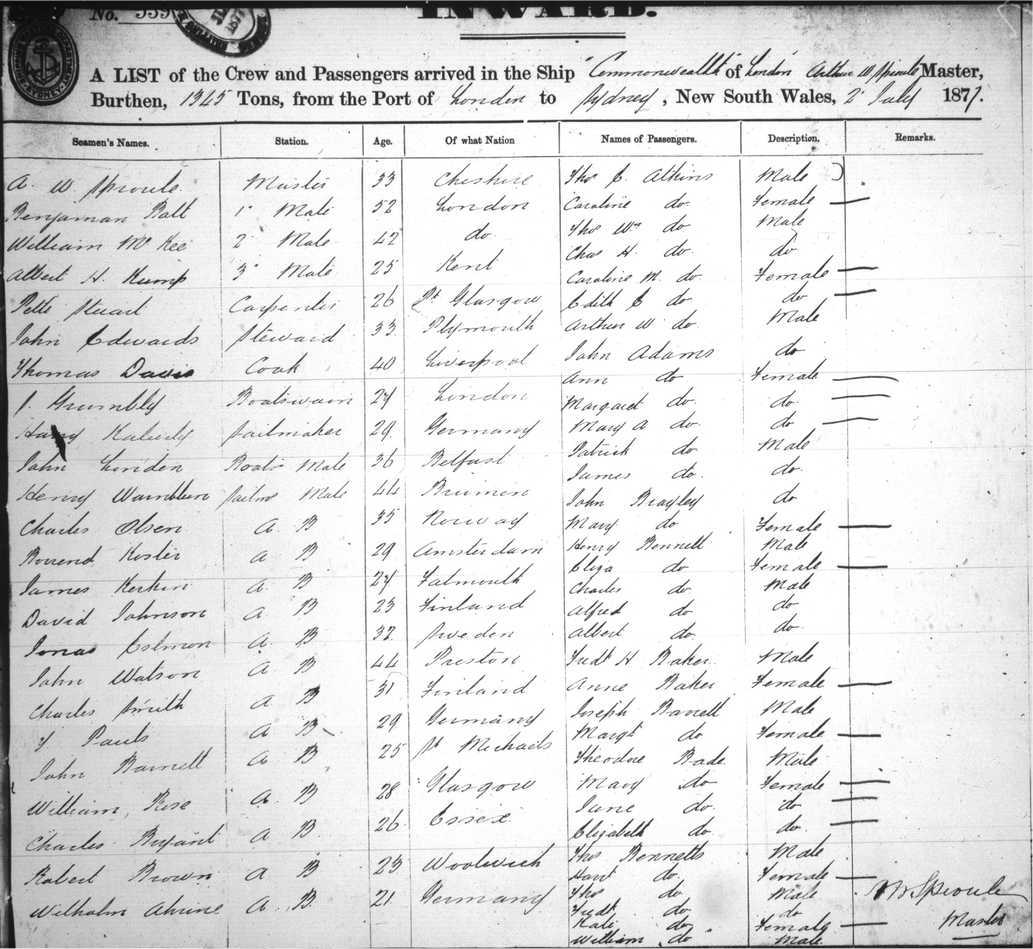 No. 339
INWARD.
A LIST of the Crew and Passengers arrived in the Ship "Commonwealth" of London Arthur W Sproule Master,
Burthen, 1345 Tons, from the Port of London to Sydney, New South Wales, 2 July 1877.
Seamen's Names. Station. Age. Of what Nation Names of Passengers. Description. Remarks.
A. W. Sproule Master 33 Cheshire Thos C. Atkins Male
Benjaman Ball 1st Mate 52 London Caroline do Female
William McKee 2d Mate 42 do Thos Wm do Male
Chas H. do do
Albert H. Kump 3d Mate 25 Kent Caroline M. do Female
Pette Stuart Carpenter 26 Pt Glasgow Edith E do do
John Edwards Steward 33 Plymouth Arthur W do Male
Thomas Davis Cook 40 Liverpool John Adams do
Ann do Female
J. Grumbly Boatswain 24 London Margaret do do
Harry Sailmaker 29 Germany Mary A do do
Patrick do Male
John Linden Boats Mate 36 Belfast James do do
Henry Sailms Mate 44 Bremen John Brayley do
Charles Olsen A. B 35 Norway Mary do Female
Koster A B 29 Amsterdam Henry Bennett Male
James Kerkin A. B 24 Falmouth Eliza do Female
Charles do Male
David Johnson A B 23 Finland Alfred do do
Jonas A. B 32 Sweden Albert do do
John Watson A B 44 Preston Fredk H Baker Male
Charles Smith A B 31 Finland Anne Baker Female
Y Pauls A B 29 Germany Joseph Barrett Male
Margt do Female
John Barnett A B 25 St Michaels Theodore Bade Male
William Rose A. B 28 Glasgow Mary do Female
Jane do do
Charles Bryant A B 26 Essex Elizabeth do do
Robert Brown A B 23 Woolwich Thos Bennetts Male
Hart do Female
Wilhelm A. B 21 Germany Thos do Male
Fredk do do
Kate do Female
William do Male
A W Sproule
Master